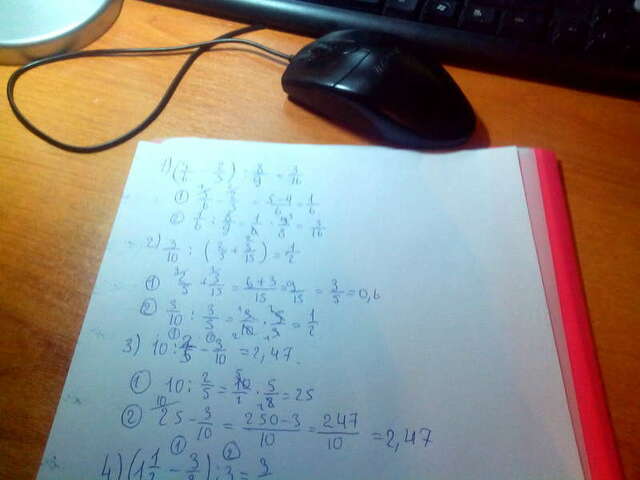 1) ( − 2/3) : 8/9 = 3/16
① − = 5−4/6 = 1/6
② 1/6 : 8/9 = 1/6 · 9/8 = 3/16
2) 3/10 : (2/5 + 3/15) = 1/2
① 2/5 + 3/15 = 6+3/15 = 9/15 = 3/5 = 0,6
② 3/10 : 3/5 = 3/10 · 5/3 = 1/2
3) 10 : 2/5 − 3/10 = 2,47
① 10 : 2/5 = 10/1 · 5/2 = 25
② 25 − 3/10 = 250−3/10 = 247/10 = 2,47
4) (1 1/2 − 3/8) : 3 = 3